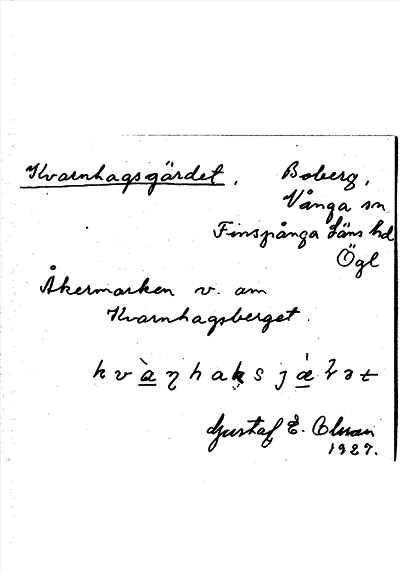 Kvarnhagsgärdet. Boberg,
Vånga sn
Finspånga läns hd
Ögl
Åkermarken v. om
Kvarnhagsberget.
Gustaf E. Olsson
1927.